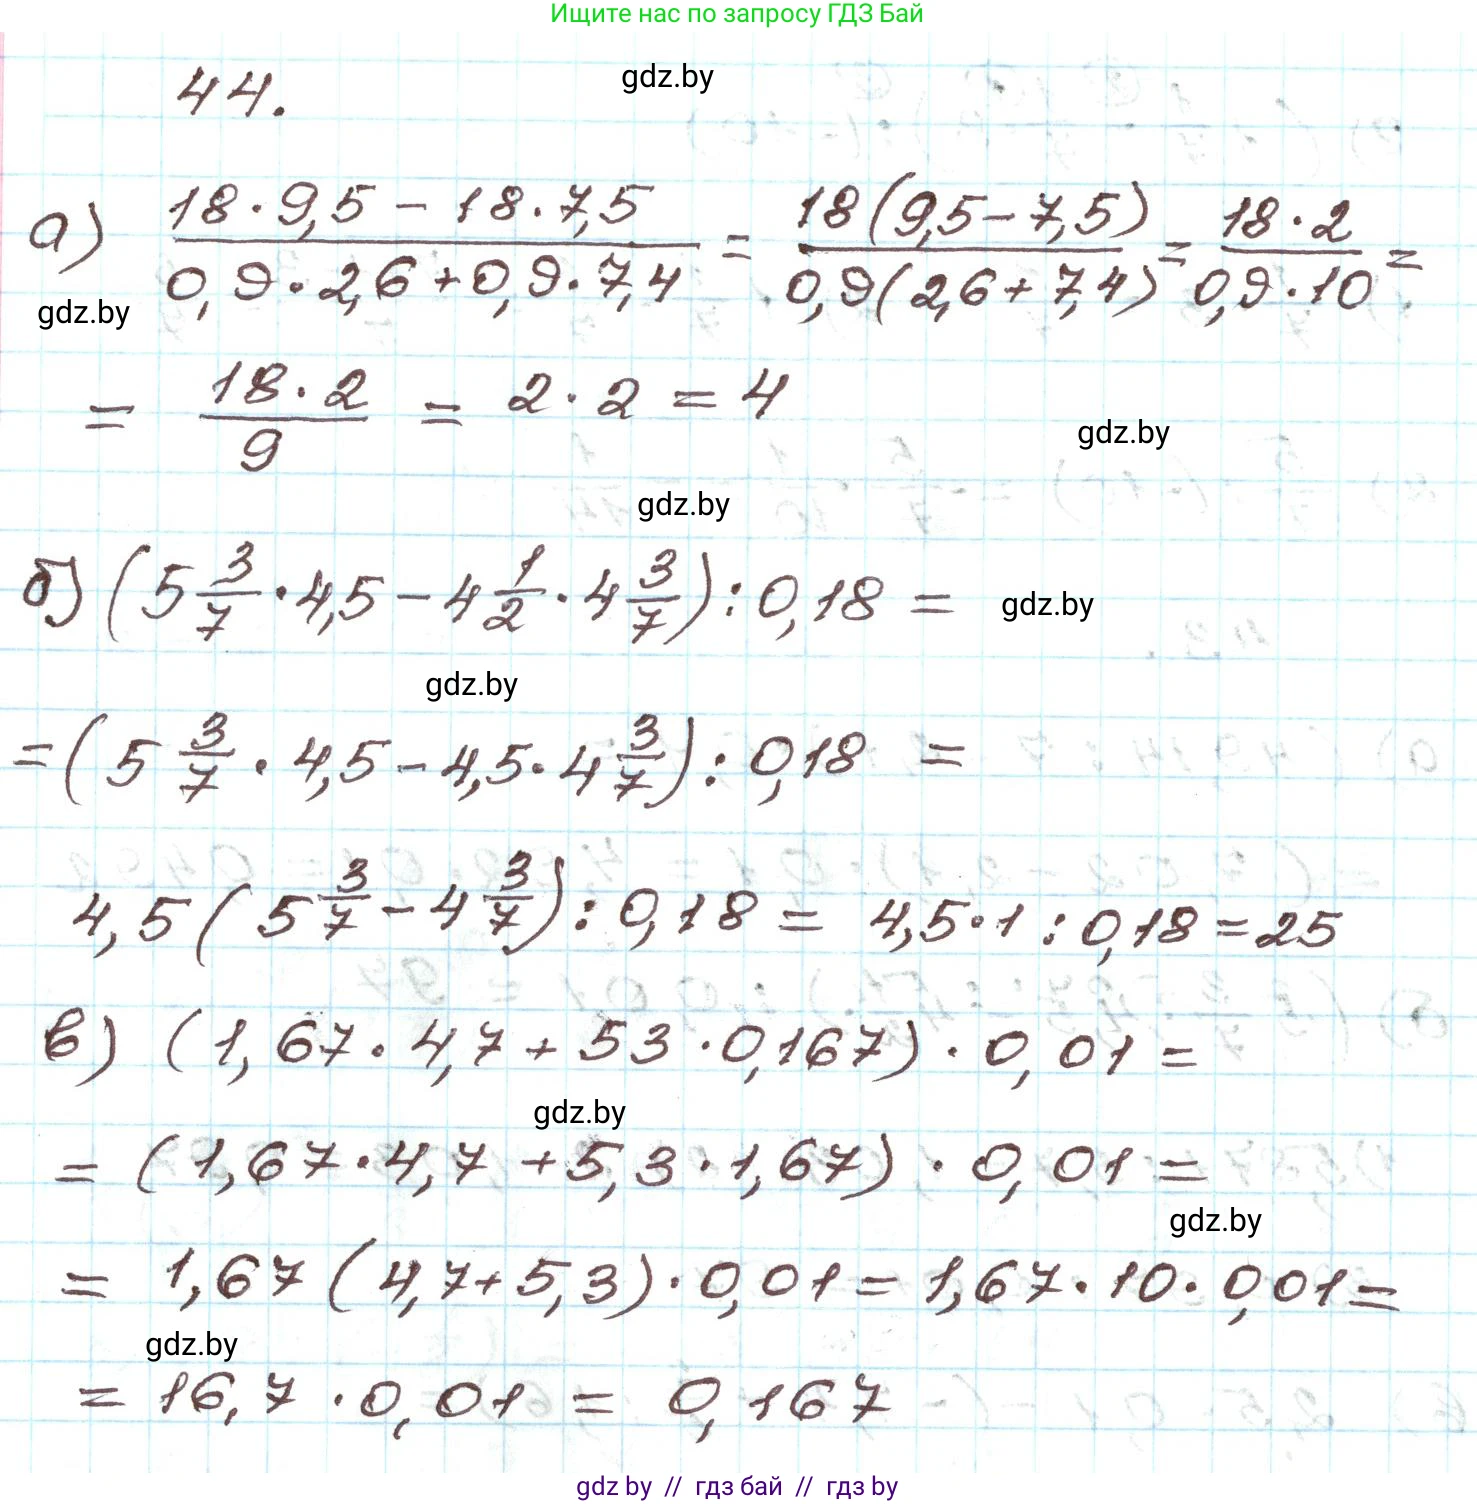 Ищите нас по запросу ГДЗ Бай
44.
gdz.by
а) \frac{18·9,5−18·7,5}{0,9·2,6+0,9·7,4} = \frac{18(9,5−7,5)}{0,9(2,6+7,4)} = \frac{18·2}{0,9·10} =
gdz.by
= \frac{18·2}{9} = 2·2 = 4
gdz.by
gdz.by
б) (5 3/7 · 4,5 − 4 1/2 · 4 3/7) : 0,18 =
gdz.by
gdz.by
= (5 3/7 · 4,5 − 4,5 · 4 3/7) : 0,18 =
4,5 (5 3/7 − 4 3/7) : 0,18 = 4,5·1 : 0,18 = 25
в) (1,67 · 4,7 + 53 · 0,167) · 0,01 =
gdz.by
= (1,67 · 4,7 + 5,3 · 1,67) · 0,01 =
gdz.by
= 1,67 (4,7+5,3) · 0,01 = 1,67 · 10 · 0,01 =
gdz.by
= 16,7 · 0,01 = 0,167
gdz by // гдз бай // гдз by